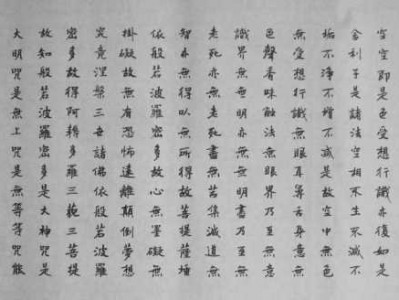 空空即是色受想行識亦復如是
舍利子是諸法空相不生不滅不
垢不淨不增不減是故空中無色
無受想行識無眼耳鼻舌身意無
色聲香味觸法無眼界乃至無意
識界無無明亦無無明盡乃至無
老死亦無老死盡無苦集滅道無
智亦無得以無所得故菩提薩埵
依般若波羅密多故心無罣礙無
掛礙故無有恐怖遠離顛倒夢想
究竟涅槃三世諸佛依般若波羅
密多故得阿耨多羅三藐三菩提
故知般若波羅密多是大神咒是
大明咒是無上咒是無等等咒能